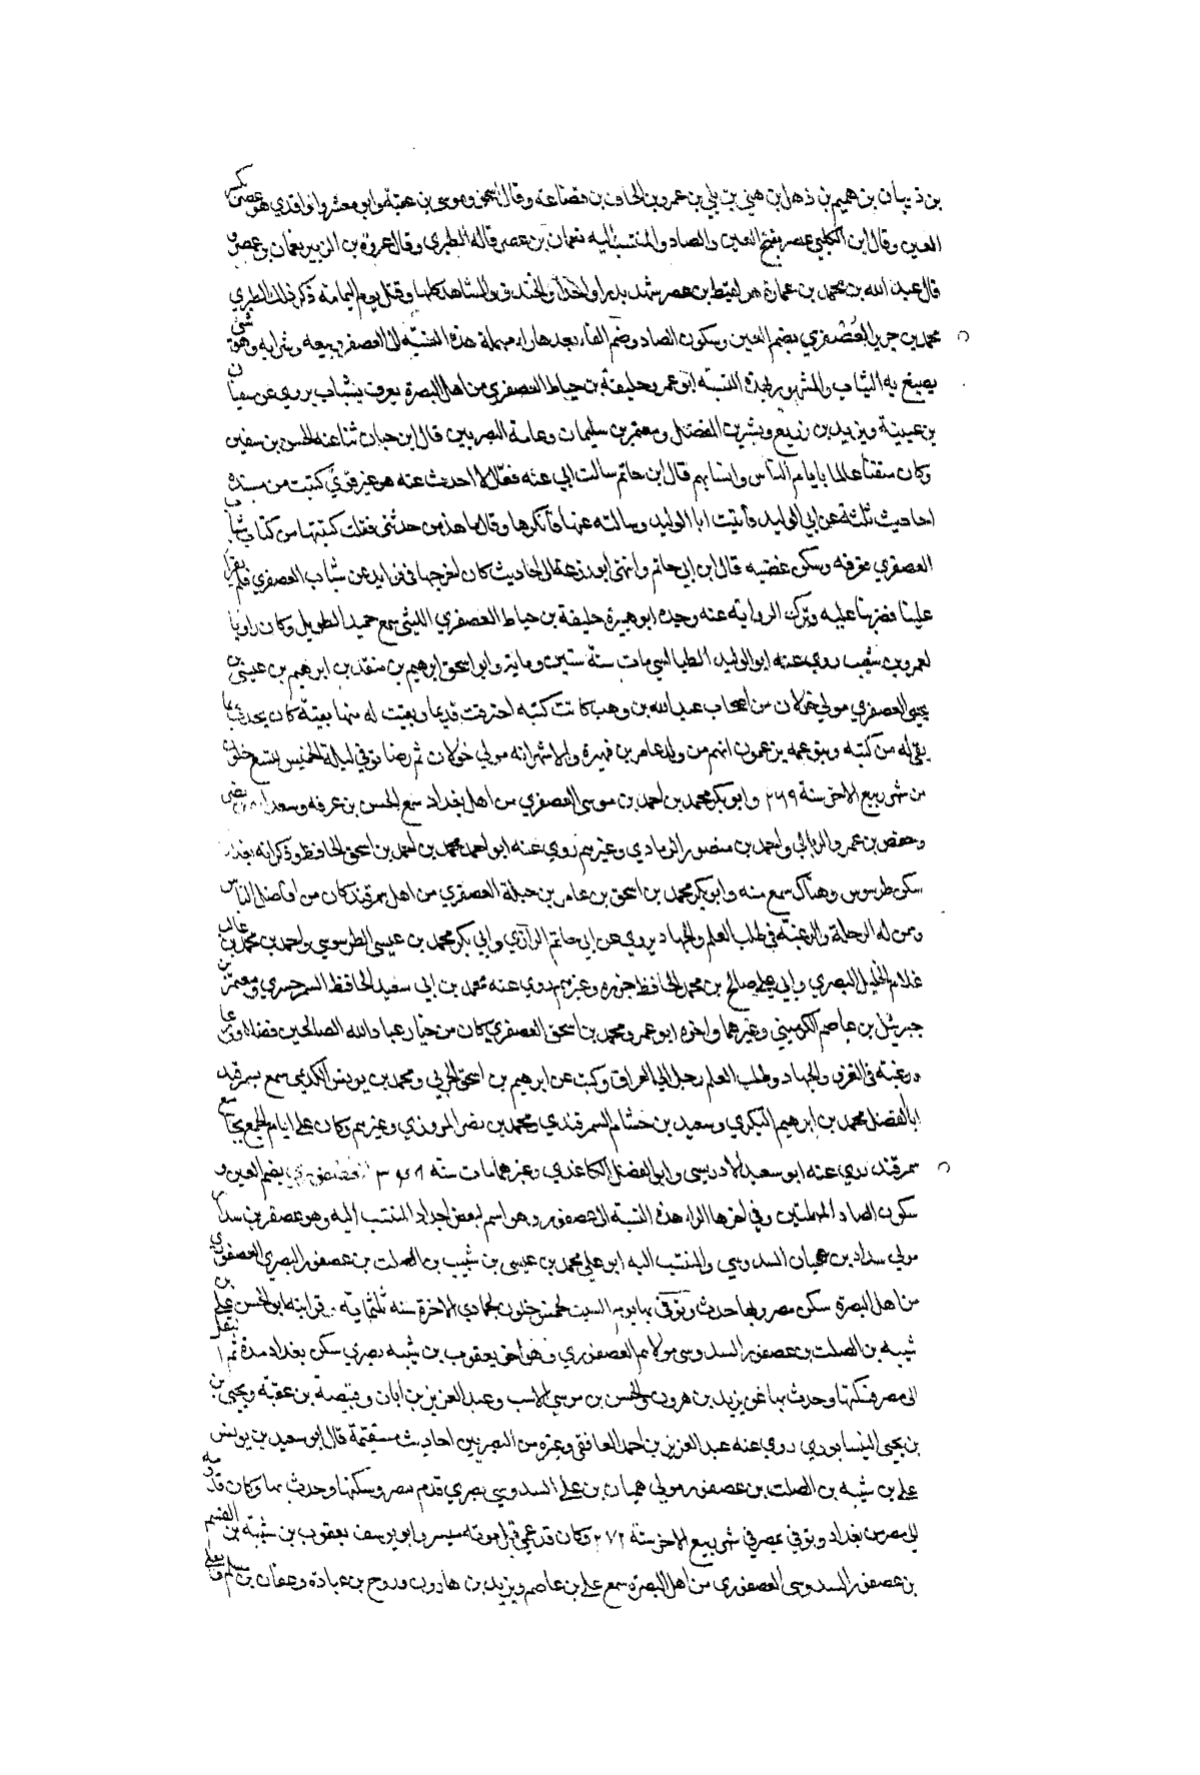 بن ذبيان بن هميم بن ذهل بن هني بن بلي بن عمرو بن الحاف بن قضاعة وقال اسحق وموسى بن عقبة وابو معشر والواقدي هو عصر بكسر
العين وقال ابن الكلبي عصر بفتح العين والصاد والمنتسب اليه نعمان بن عصر قاله الطبري وقال عروة بن الزبير نعمان بن عصر و
قال عبد الله بن محمد بن عمارة هو لقيط بن عصر شهد بدرا واحدا والخندق والمشاهد كلها وقتل يوم اليمامة ذكر ذلك الطبري
محمد بن جرير العُصْفُري بضم العين وسكون الصاد وضم الفاء بعدها راء مهملة هذه النسبة الى العصفر وبيعه وشرايه وهو شي
يصبغ به الثياب والمشهور بهذه النسبة ابو عمرو خليفة بن خياط العصفري من اهل البصرة يعرف بشباب يروي عن سفيان
بن عيينة ويزيد بن زريع وبشر بن الفضل ومعتمر بن سليمان وعامة البصريين قال ابن حبان ثنا عنه الحسن بن سفين
وكان متقنا عالما بايام الناس وانسابهم قال ابن حاتم سالت ابي عنه فقال لا احدث عنه هو غير قوي كتبت من مسنده
احاديث ثلثة عن ابي الوليد فاتيت ابا الوليد وسالته عنها فانكرها وقال ما هذه من حدثني فقلت كتبتها من كتاب شباب
العصفري فعرفه وسكن غضبه قال ابن ابي حاتم وانتهى ابو زرعة الى احاديث كان اخرجها في فوايد عن شباب العصفري فلم يقرأ
علينا فضربنا عليه وترك الرواية عنه وجده ابو هبيرة خليفة بن خياط العصفري الليثي سمع حميد الطويل وكان راويا
لعمرو بن شعيب روي عنه ابو الوليد الطيالسي مات سنة ستين وماية وابو اسحق ابرهيم بن منقذ بن ابرهيم بن عيسى بن
يحيى العصفري مولي خولان من اصحاب عبد الله بن وهب كانت كتبه احترقت قديما وبقيت له منها بقية كان يحدث بما
بقي له من كتبه وبنو عمه يزعمون انهم من ولد عامر بن فهيرة والاشهر انه مولي خولان ثم رضا توفي ليلة الخميس لتسع خلون
من شهر ربيع الاخر سنة ٢٦٩ وابو بكر محمد بن احمد بن موسى العصفري من اهل بغداد سمع الحسن بن عرفه وسعدان بن نصر
وحفص بن عمرو الربالي واحمد بن منصور الرمادي وغيرهم روي عنه ابو احمد محمد بن احمد بن اسحق الحافظ وذكر انه بغدادي
سكن طرسوس وهناك سمع منه وابو بكر محمد بن اسحق بن عامر بن حبلة العصفري من اهل سمرقند كان من افاضل الناس
ومن له الرحلة والرغبة في طلب العلم والجهاد يروي عن ابي حاتم الرازي وابي بكر محمد بن عيسى الطرسوسي واحمد بن محمد بن غالب
غلام الخليل البصري وابي علي صالح بن محمد الحافظ جزره وغيرهم روي عنه محمد بن ابي سعيد الحافظ السرخسي ومعتمر بن
جبرئيل بن عاصم الكرميني وغيرهما واخوه ابو عمرو محمد بن اسحق العصفري كان من خيار عباد الله الصالحين فضلا وورعا
ورغبة في الغزو والجهاد وطلب العلم رحل الي العراق وكتب عن ابرهيم بن اسحق الحربي ومحمد بن يونس الكديمي سمع بسمرقند
ابا الفضل محمد بن ابرهيم البكري وسعيد بن خشنام السمرقندي ومحمد بن نصر المروزي وغيرهم وكان علي ايام الجمع بجامع
سمرقند روي عنه ابو سعيد الادريسي وابو الفضل الكاغذي وغيرهما مات سنة العصفوري بضم العين و
سكون الصاد المهملتين وفي اخرها الراء هذه النسبة الى عصفور وهو اسم لبعض اجداد المنتسب اليه وهو عصفر بن سداد
مولي سداد بن هميان السدوسي والمنتسب اليه ابو علي محمد بن عيسى بن شيبب بن الصلت بن عصفور البصري العصفوري
من اهل البصرة سكن مصر وبها حدث وتوفي بها يوم السبت لخمس خلون لجمادي الاخرة سنه ثلثمايه قرابته ابو الحسن علي بن
شيبه بن الصلت بن عصفور السدوسي مولاهم العصفوري وهو اخو يعقوب بن شيبه بصري سكن بغداد مدة ثم انتقل
الى مصر فسكنها وحدث بها عن يزيد بن هرون والحسن بن موسي الاشيب وعبد العزيز بن ابان وقبيصة بن عقبة ويحيى بن
بن يحيى النيسابوري روي عنه عبد العزيز بن احمد الغافقي وغيره من البصريين احاديث مستقيمة قال ابو سعيد بن يونس
علي بن شيبه بن الصلت بن عصفور مولي هميان بن علي السدوسي بصري قدم مصر وسكنها وحدث بها وكان قدومه
الى مصر من بغداد وتوفي بمصر في شهر ربيع الاخر سنة ٢٧٢ وكان قد عمي قبل موته بيسير وابو يوسف يعقوب بن شيبة بن الصلت
بن عصفور السدوسي العصفوري من اهل البصرة سمع علي بن عاصم ويزيد بن هارون وروح بن عبادة وعفان بن مسلم ويعلي